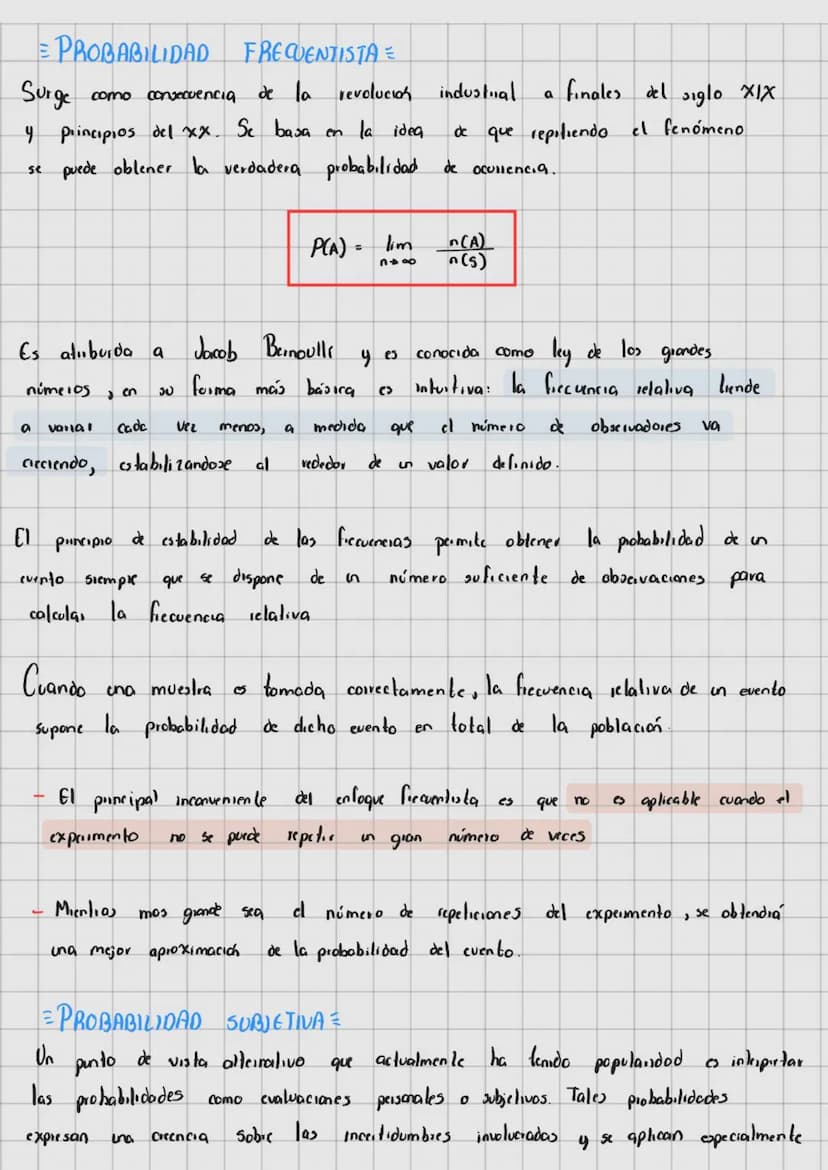 PROBABILIDAD FRECUENTISTA
Surge como consecuencia de la revolución industrial a finales del siglo XIX
y principios del XX. Se basa en la idea de que repitiendo el fenómeno
se puede obtener la verdadera probabilidad de ocurrencia.
P(A) = lim n→∞ n(A)/n(S)
Es atribuida a Jacob Bernoulli y es conocida como ley de los grandes
números, en su forma más básica es intuitiva: la frecuencia relativa tiende
a variar cada vez menos, a medida que el número de observadores va
creciendo, estabilizandose al rededor de un valor definido.
El principio de estabilidad de las frecuencias permite obtener la probabilidad de un
evento siempre que se dispone de un número suficiente de observaciones para
calcular la frecuencia relativa
Cuando una muestra es tomada correctamente, la frecuencia relativa de un evento
supone la probabilidad de dicho evento en total de la población.
- El principal inconveniente del enfoque frecuentista es que no es aplicable cuando el
experimento no se puede repetir un gran número de veces
- Mientras mas grande sea el número de repeticiones del experimento, se obtendrá
una mejor aproximación de la probabilidad del evento.
PROBABILIDAD SUBJETIVA
Un punto de vista alternativo que actualmente ha tenido popularidad es interpretar
las probabilidades como evaluaciones personales o subjetivos. Tales probabilidades
expresan una creencia sobre las incertidumbres involucradas y se aplican especialmente